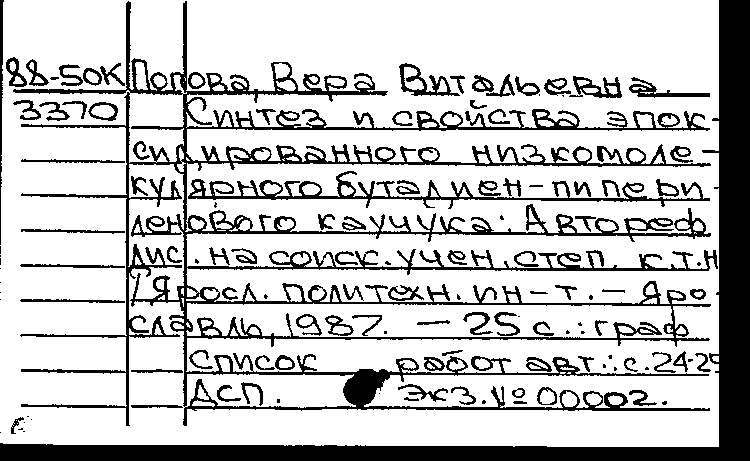 88-50К Попова, Вера Витальевна.
3370 Синтез и свойства эпок-
сидированного низкомоле-
кулярного бутадиен-пипери-
ленового каучука: Автореф
дис. на соиск. учен. степ. к.т.н
/ Яросл. политехн. ин-т. — Яро-
славль, 1987. — 25 с.: граф
Список работ авт.: с. 24-25
ДСП. Экз. № 00002.